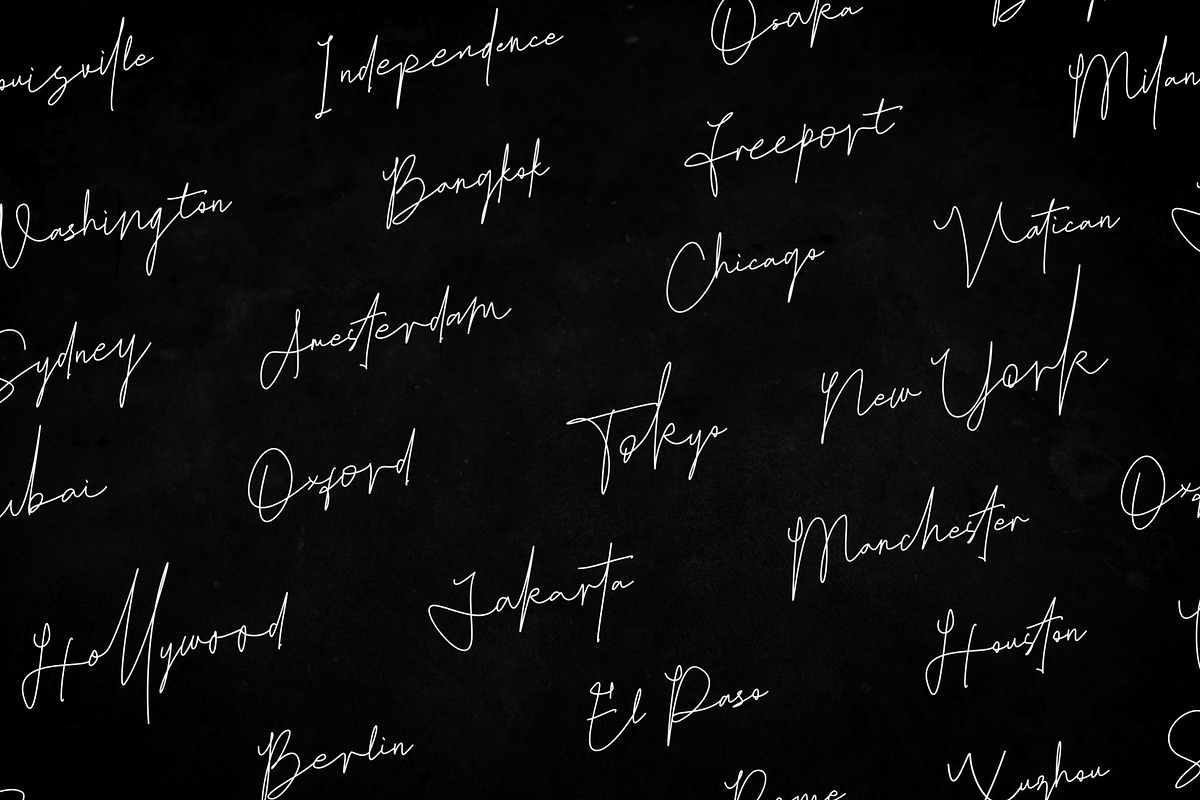 ouisville
Independence
Osaka
Milan
Washington
Bangkok
Freeport
Sydney
Amesterdam
Chicago
Vatican
ubai
Oxford
Tokyo
New York
Hollywood
Jakarta
Manchester
Ox
Berlin
El Paso
Houston
Rome
Xuzhou